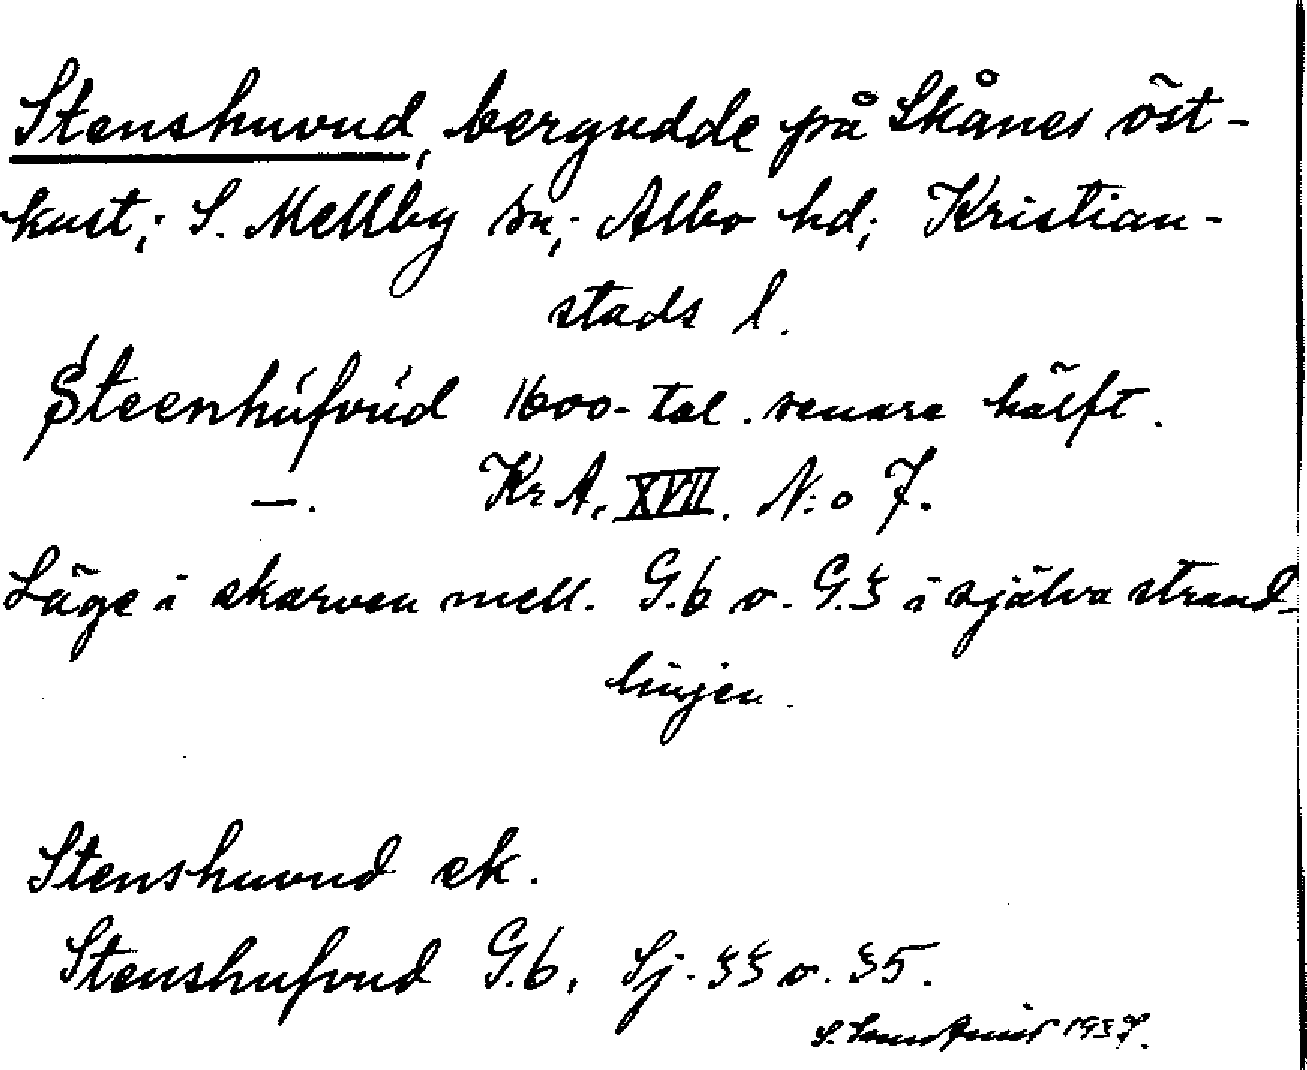 Stenshuvud, bergudde på Skånes öst-
kust; S. Mellby sn; Albo hd; Kristian-
stads l.
Steenhúfvúd 1600-tal. senare hälft.
—. Kr A, XVII. N:o 7.
Läge i skarven mell. G.6 o. G.3 i själva strand-
linjen.
Stenshuvud ek.
Stenshufvud G.6, Sj. 33 o. 35.
S. 1937.